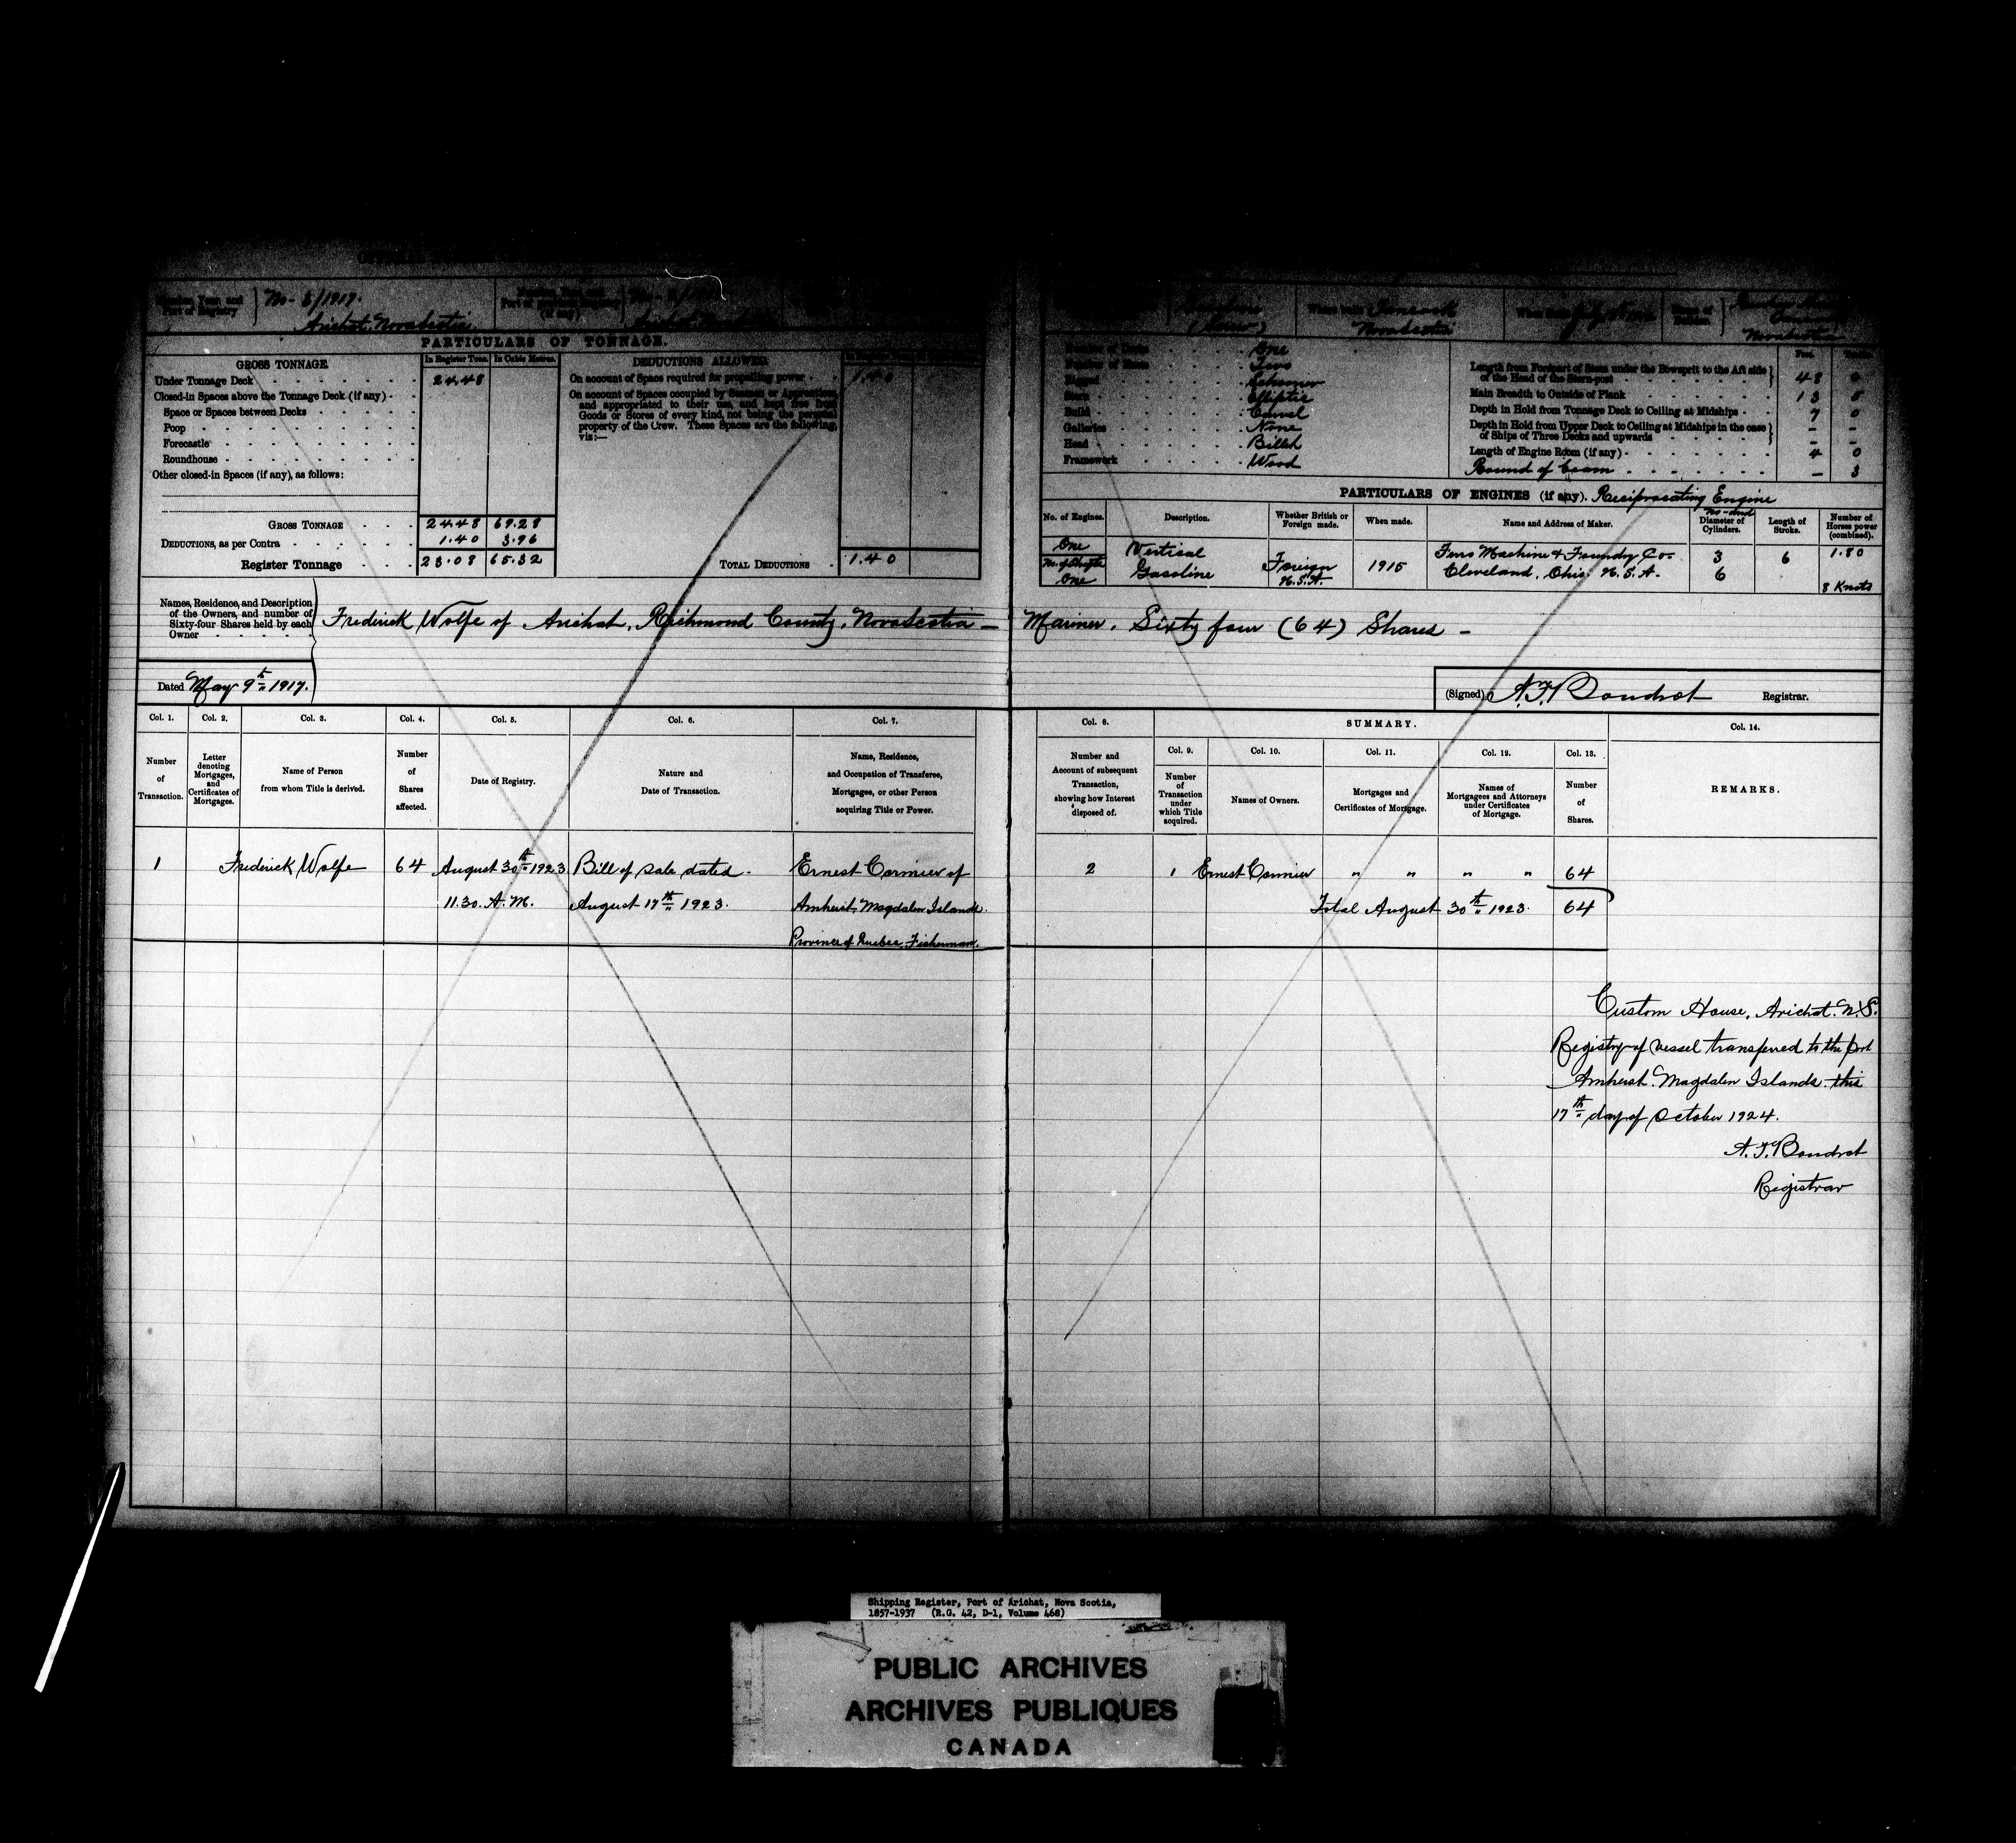 Number, Year, and
Port of Registry
No - 5/1917.
Arichat, Nova Scotia.
Port of
(if any)
No -
Where built
Nova Scotia
Nova Scotia
PARTICULARS OF TONNAGE.
GROSS TONNAGE
In Register Tons.
In Cubic Metres.
DEDUCTIONS ALLOWED
Under Tonnage Deck
24.48
On account of Space required for propelling power
1.40
Closed-in Spaces above the Tonnage Deck (if any)
On account of Spaces occupied by Seamen or Apprentices,
and appropriated to their use, and kept free from
Goods or Stores of every kind, not being the personal
property of the Crew. These Spaces are the following,
viz:—
Space or Spaces between Decks
Poop
Forecastle
Roundhouse
Other closed-in Spaces (if any), as follows:
GROSS TONNAGE
24.48 69.28
DEDUCTIONS, as per Contra
1.40 3.96
Register Tonnage
23.08 65.32
TOTAL DEDUCTIONS
1.40
Number of Decks One
Number of Masts Two
Rigged Schooner
Stern Elliptic
Build Carvel
Galleries None
Head Billet
Framework Wood
Feet.
Length from Forepart of Stem under the Bowsprit to the Aft side
of the Head of the Stern-post 48 0
Main Breadth to Outside of Plank 13 5
Depth in Hold from Tonnage Deck to Ceiling at Midships 7 0
Depth in Hold from Upper Deck to Ceiling at Midships in the case
of Ships of Three Decks and upwards - -
Length of Engine Room (if any) 4 0
Round of beam — 3
PARTICULARS OF ENGINES (if any). Reciprocating Engine
No. of Engines.
Description.
Whether British or
Foreign made.
When made.
Name and Address of Maker.
No- and
Diameter of
Cylinders.
Length of
Stroke.
Number of
Horses power
(combined).
One
No. of Shafts
One
Vertical
Gasoline
Foreign
U.S.A.
1915
Machine & Foundry Co.
Cleveland, Ohio. U.S.A.
3
6
6
1.80
8 Knots
Names, Residence, and Description
of the Owners, and number of
Sixty-four Shares held by each
Owner
Frederick Wolfe of Arichat, Richmond County, Nova Scotia — Mariner. Sixty four (64) Shares -
Dated May 9th 1917.
(Signed) A.F. Boudrot Registrar.
Col. 1.
Number
of
Transaction.
Col. 2.
Letter
denoting
Mortgages,
and
Certificates of
Mortgages.
Col. 3.
Name of Person
from whom Title is derived.
Col. 4.
Number
of
Shares
affected.
Col. 5.
Date of Registry.
Col. 6.
Nature and
Date of Transaction.
Col. 7.
Name, Residence,
and Occupation of Transferee,
Mortgagee, or other Person
acquiring Title or Power.
Col. 8.
Number and
Account of subsequent
Transaction,
showing how Interest
disposed of.
SUMMARY.
Col. 9.
Number
of
Transaction
under
which Title
acquired.
Col. 10.
Names of Owners.
Col. 11.
Mortgages and
Certificates of Mortgage.
Col. 12.
Names of
Mortgagees and Attorneys
under Certificates
of Mortgage.
Col. 13.
Number
of
Shares.
Col. 14.
REMARKS.
1 Frederick Wolfe 64 August 30th 1923 Bill of sale dated. Ernest Cormier of
11.30. A.M. August 17th 1923. Amherst, Magdalen Islands.
Province of Quebec, Fisherman.
2 1 Ernest Cormier " " " " 64
Total August 30th 1923. 64
Custom House, Arichat. N.S.
Registry of vessel transferred to the port
Amherst. Magdalen Islands this
17th day of October 1924.
A.F. Boudrot
Registrar
Shipping Register, Port of Arichat, Nova Scotia,
1857-1937 (R.G. 42, D-1, Volume 468)
PUBLIC ARCHIVES
ARCHIVES PUBLIQUES
CANADA